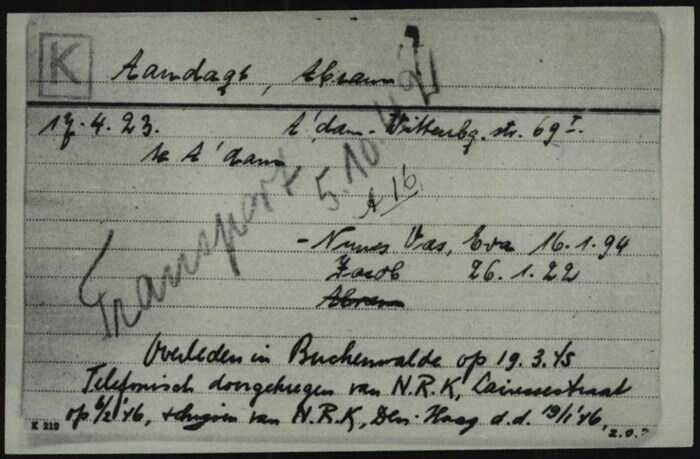 K
Aandagt, Abram
17.4.23. A'dam - Wittenbg. str. 69 I.
te A'dam
Transport 5.10.42
A 16
- Nunes Vas, Eva 16.1.94
Jacob 26.1.22
Abram
Overleden in Buchenwalde op 19.3.45
Telefonisch doorgekregen van N.R.K, Lairessestraat
op 6/2'46, schrijven van N.R.K, Den-Haag d.d. 19/1'46,
K 210
z.o.